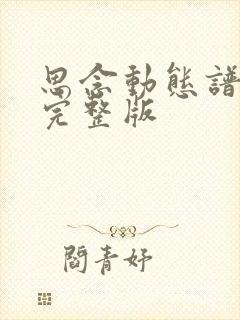 思念動態譜
完整版
閻青妤